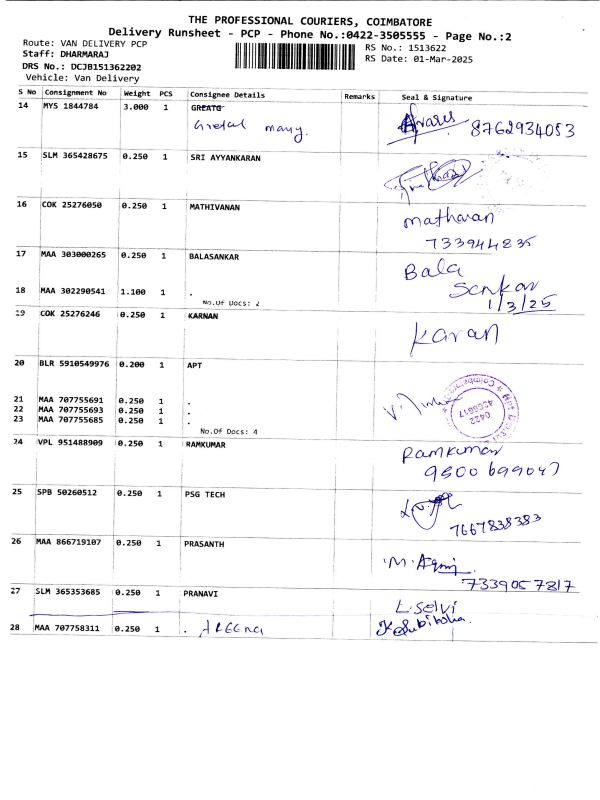 THE PROFESSIONAL COURIERS, COIMBATORE
Delivery Runsheet - PCP - Phone No.:0422-3505555 - Page No.:2
Route: VAN DELIVERY PCP
Staff: DHARMARAJ
DRS No.: DCJB151362202
Vehicle: Van Delivery
RS No.: 1513622
RS Date: 01-Mar-2025
S No Consignment No Weight PCS Consignee Details Remarks Seal & Signature
14 MYS 1844784 3.000 1 GREATG
8762934053
15 SLM 365428675 0.250 1 SRI AYYANKARAN
16 COK 25276050 0.250 1 MATHIVANAN
mathavan
733944835
17 MAA 303000265 0.250 1 BALASANKAR
Bala
18 MAA 302290541 1.100 1 .
Sankar
No.Of Docs: 2
1/3/25
19 COK 25276246 0.250 1 KARNAN
Karan
20 BLR 5910549976 0.200 1 APT
21 MAA 707755691 .
22 MAA 707755693 0.250 1 .
23 MAA 707755685 0.250 1 .
No.Of Docs: 4
0422
24 VPL 951488909 0.250 1 RAMKUMAR
Ramkumar
9500699047
25 SPB 50260512 0.250 1 PSG TECH
7667838383
26 MAA 866719107 0.250 1 PRASANTH
7339057817
27 SLM 365353685 0.250 1 PRANAVI
L. Selvi
28 MAA 707758311 0.250 1 .